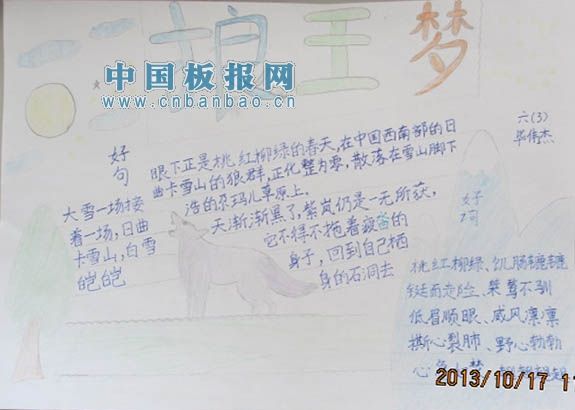 狼王梦
中国板报网
www.cnbanbao.cn
六(3)
毕伟杰
好
句
眼下正是桃红柳绿的春天,在中国西南部的日
曲卡雪山的狼群,正化整为零,散落在雪山脚下
浩的尕玛儿草原上。
天渐渐黑了,紫岚仍是一无所获,
它不得不拖着疲惫的
身子,回到自己栖
身的石洞去
大雪一场接
着一场,日曲
卡雪山,白雪
皑皑
好
词
桃红柳绿、饥肠辘辘
铤而走险、桀骜不驯
低眉顺眼、威风凛凛
撕心裂肺、野心勃勃
心
2013/10/17 11